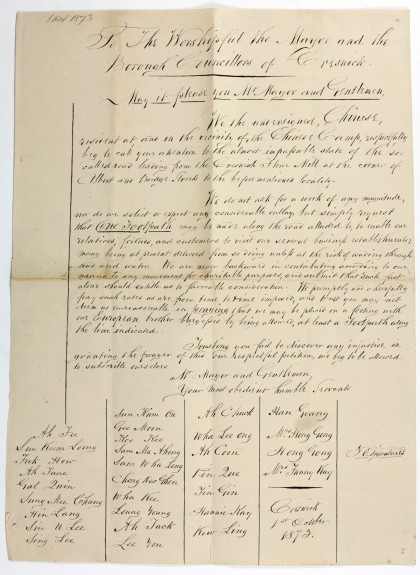 1 Oct 1873
To The Worshipful the Mayor and the
Borough Councillors of Creswick.
May it please you Mr Mayor and Gentlemen,
We the undersigned, Chinese,
resident at, and in the vicinity of, the Chinese Camp, respectfully
beg to call your attention to the almost impassable state of the so-
called road leading from the Creswick Flour Mill at the corner of
Albert and Bridge Streets to the before mentioned locality.
We do not ask for a work of any magnitude,
nor do we solicit or expect any considerable outlay, but simply request
that One Footpath may be made along the road alluded to, to enable our
relatives, friends, and customers to visit our several business establishments,
many being at present deterred from so doing unless at the risk of wading through
mud and water. We are never backward in contributing according to our
means to any movement for charitable purposes, and submit that such
alone should entitle us to favorable consideration. We promptly and cheerfully
pay such rates as are from time to time imposed, and thus you may not
deem us unreasonable in praying that we may be placed on a footing with
our European brother Burgesses by being allowed, at least a Footpath along
the line indicated.
Trusting you fail to discover any injustice in
granting the prayer of this our respectful petition, we beg to be allowed
to subscribe ourselves
Mr Mayor and Gentlemen,
Your most obedient humble Servants
Ah Fee
Sun Kwem Loong
Fuk How
Ah June
Gal Quin
Sung Mee Chung
Hin Lang
Sin U Lee
Sing Lee
Sun Kum On
Gee Moon
Kee Kee
Sam Ma Shong
Sam Wha Long
Chong Koo Shen
Wha Kee
Loung Young
Ah Jack
Lee Yon
Ah Chuck
Wha Lee on
Ah Coon
Fin Que
Tin Gin
Nannie Hay
Kow Ling
Han Geang
Mrs Hong Gong
Hong Gong
Mrs Fanny Hay
Creswick
1st October
1873.
Signatures